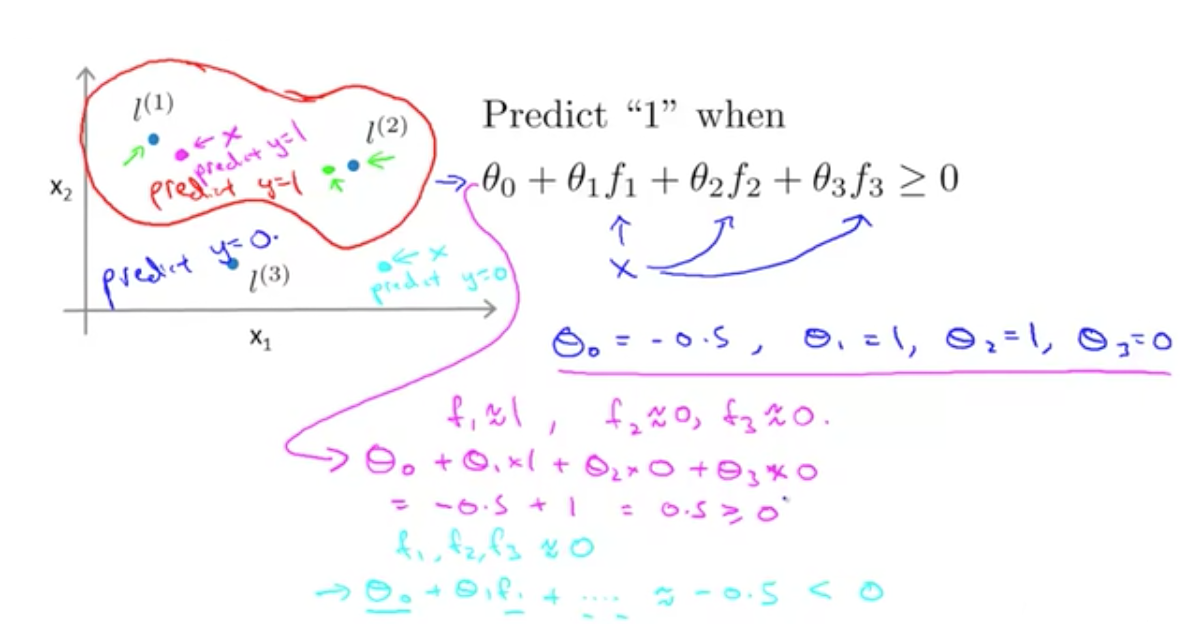 l⁽¹⁾
← x
predict y=1
l⁽²⁾
predict y=1
x₂
predict y=0.
l⁽³⁾
← x
predict y=0
x₁
Predict “1” when
→ θ₀ + θ₁f₁ + θ₂f₂ + θ₃f₃ ≥ 0
x
θ₀ = -0.5, θ₁ = 1, θ₂ = 1, θ₃ = 0
f₁ ≈ 1, f₂ ≈ 0, f₃ ≈ 0.
→ θ₀ + θ₁×1 + θ₂×0 + θ₃×0
= -0.5 + 1 = 0.5 ≥ 0
f₁, f₂, f₃ ≈ 0
→ θ₀ + θ₁f₁ + .... ≈ -0.5 < 0